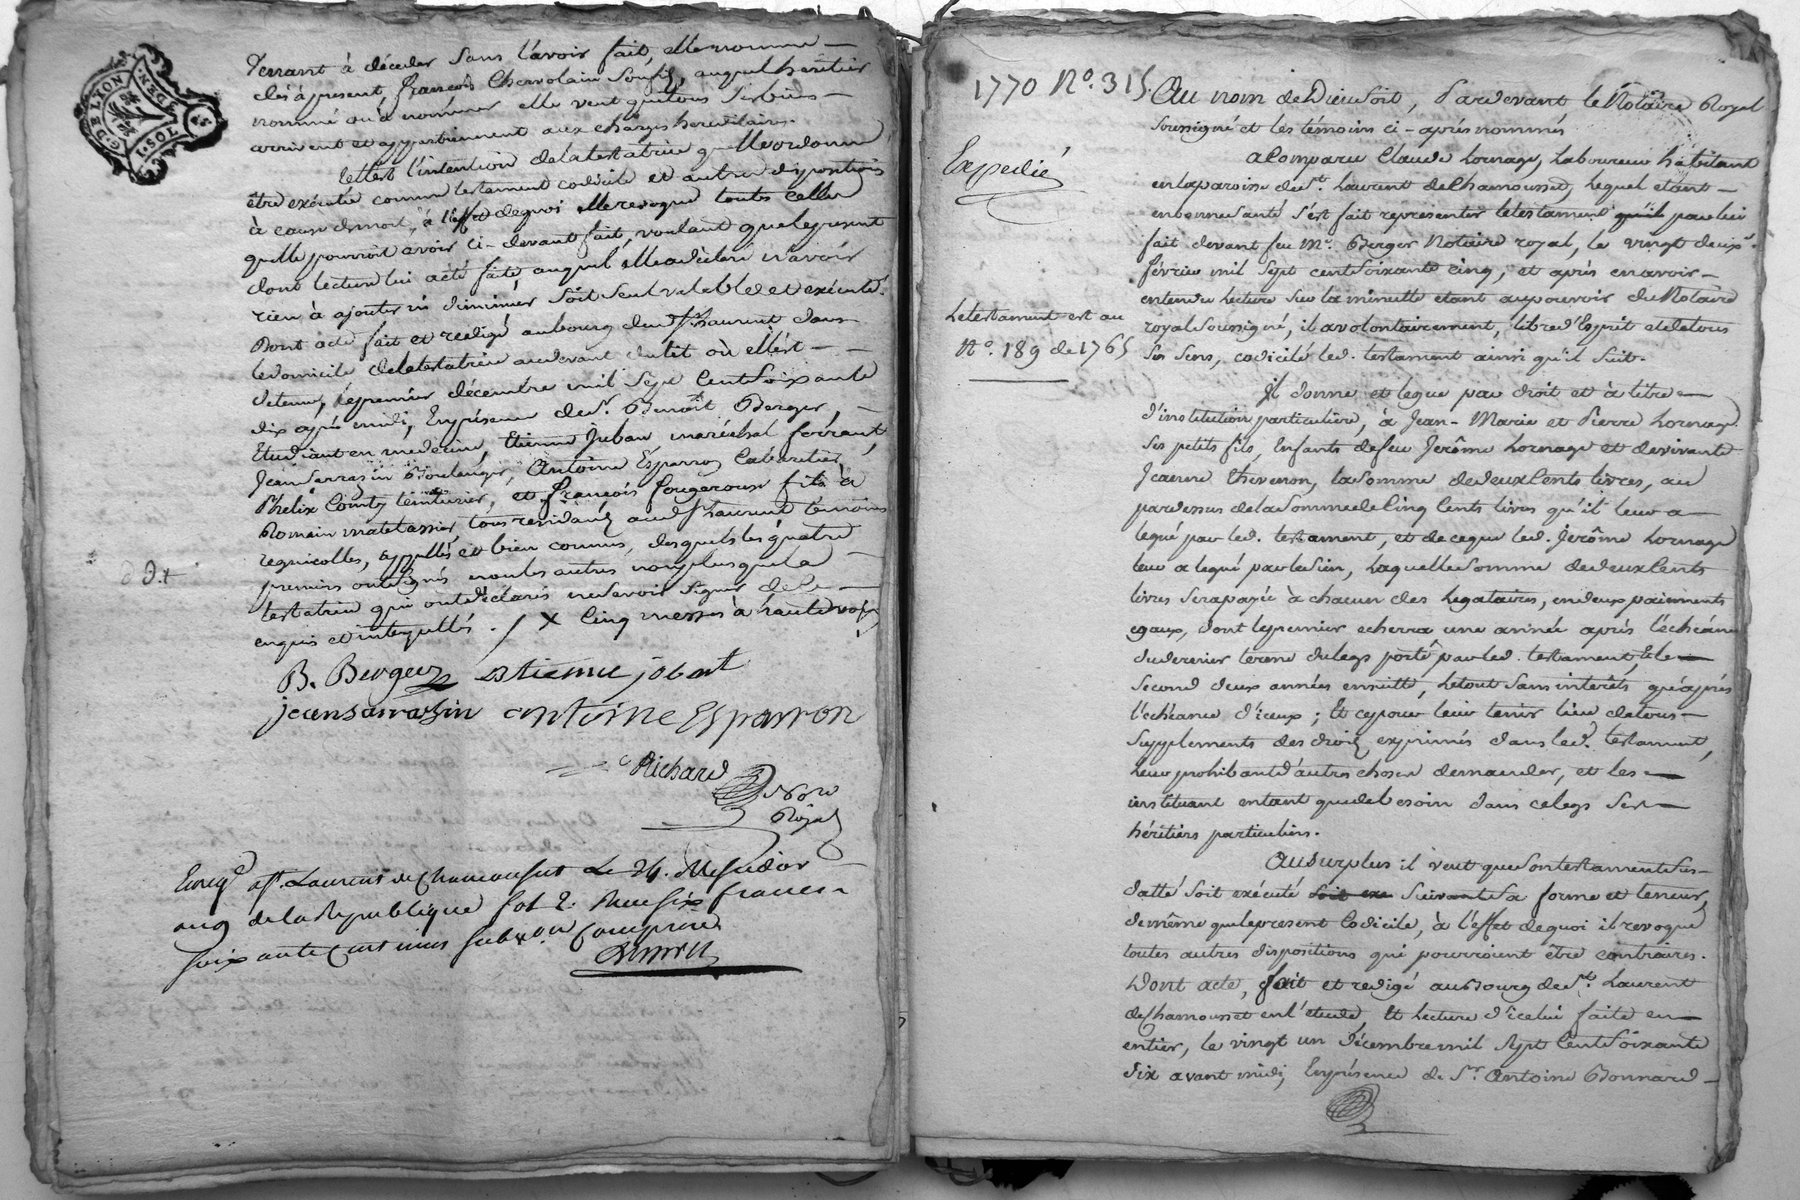 G. DE LYON
1. SOL
DEN
Venant à décéder Sans l'avoir fait, elle nomme
dès à present, françois Chervolain Son fils, auquel héritier
nommé ou à nommer elle veut que tous Ses biens
arrivent et appartiennent aux charges hereditaires.
telle est l'intention de la testatrice qu'elle ordonne
être exécutée comme testament codicile et autres dispositions
à cause de mort, à l'effet de quoi elle revoque toutes Celles
qu'elle pourroit avoir ci-devant fait, voulant que le present
dont lecture lui a été faite, auquel elle a déclaré n'avoir
rien à ajouter ni diminuer Soit Seul valable et exécuté.
Dont acte fait et redigé au bourg dud. St Laurent dans
le domicile de la testatrice au devant du lit où elle est
detenue, le premier décembre mil Sept Cent Soixante
dix après midi, En présence de Sr. Benoît Berger,
Etudiant en medecine, Etienne Jubau maréchal ferrant,
Jean Sarrazin Boulanger, Antoine Esparron Cabaretier,
Phelix Comby teinturier, et françois fougeroux fils à
Romain matelassier, tous residants aud. St Laurent témoins
requis, appellés et bien connus, desquels les quatre
premiers ont signés non les autres non plus que la
testatrice qui ont déclarés ne Savoir Signer de ce
enquis et interpellés. / X Cinq messes à haute voix
B. Berger Estienne jobart
jean sarrazin antoine Esparron
Richard
Nore
Royal
Enreg.é a St. Laurent de Chamousset Le 24. Messidor
an 9 de la Republique fol 2. Reçu Six francs
Soixante Centimes Subvon. Comprise
1770 No. 315.
Expedié
Le testament est au
No. 189 de 1765
Au nom de Dieu Soit, Pardevant le Notaire Royal
Soussigné et les témoins ci-après nommés
a Comparu Claude Lornage, Laboureur habitant
en la paroisse de St. Laurent de Chamousset, Lequel etant
en bonne Santé S'est fait représenter le testament qu'il par lui
fait devant feu Me. Berger Notaire royal, le vingt deuxe.
février mil Sept cent Soixante cinq, et après en avoir
entendu Lecture Sur la minutte etant au pouvoir du Notaire
royal Soussigné, il a volontairement, libre d'Esprit et de tous
Ses Sens, codicilé led. testament ainsi qu'il Suit.
Il donne et legue par droit et à titre
d'institution particulière, à Jean-Marie et Pierre Lornage
Ses petits fils, Enfants de feu Jerôme Lornage et de vivante
Jeanne thevenon, la Somme de deux Cents livres, au
pardessus de la Somme de Cinq Cents livres qu'il leur a
legué par led. testament, et de ce que led. Jerôme Lornage
leur a legué par le Sien, Laquelle Somme de deux Cents
livres Sera payée à chacun des Legataires, en deux paiements
egaux, dont le premier echerra une année après l'échéance
du dernier terme du legs porté par led. testament, Et le
Second deux années ensuitte, Le tout Sans interêts qu'après
l'échéance d'iceux; Et ce pour leur tenir lieu de tous
Supplements des droits exprimés dans led. testament,
Leur prohibant d'autres choses demander, et les
instituant entant que de besoin dans ce legs Ses
héritiers particuliers.
Au Surplus il veut que Son testament Sus-
datté Soit exécuté Soit exe Suivant Sa forme et teneur,
de même que le present Codicile, à l'effet de quoi il revoque
toutes autres dispositions qui pourroient être contraires.
Dont acte, fait et redigé au Bourg de St. Laurent
de Chamousset en l'étude Et Lecture d'icelui faite en
entier, le vingt un Décembre mil Sept Cent Soixante
dix avant midi, En présence de Sr. Antoine Bonnard